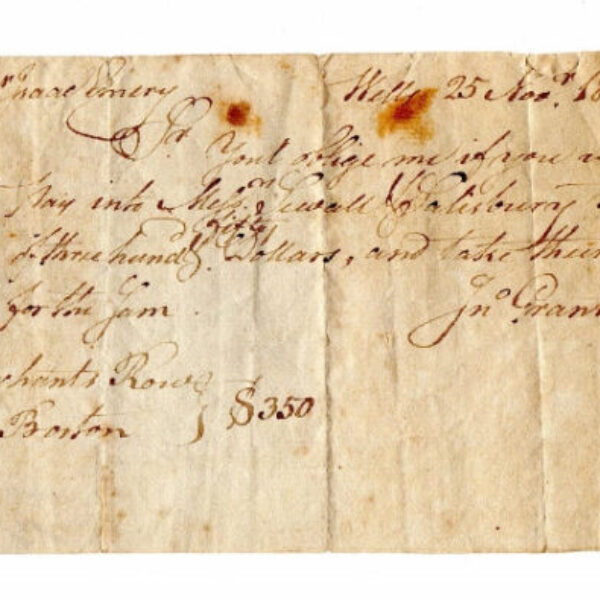 Isaac Emery Wells 25 Novr
Sr Yout oblige me if you
Pay into Messrs Sewall & Salisbury
fifty
of three hundd Dollars, and take their
for the Sam
Jno Gran
chants Row
Boston } $350